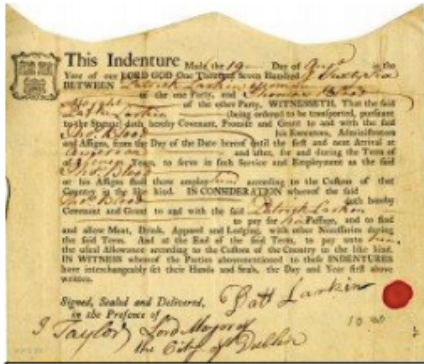 This Indenture Made the 19 Day of in the
Year of our LORD GOD One Thousand Seven Hundred & Sixty Six
BETWEEN Patrick Larkin
of the one Party, and Thomas Blood
of the other Party, WITNESSETH, That the said
Patk Larkin (being ordered to be transported, pursuant
to the Statute) doth hereby Covenant, Promise and Grant to and with the said
Thos. Blood his Executors, Administrators
and Assigns, from the Day of the Date hereof until the first and next Arrival at
and after, for and during the Term of
Seven Years, to serve in such Service and Employment as the said
Thos. Blood
or his Assigns shall there employ him according to the Custom of that
Country in the like kind. IN CONSIDERATION whereof the said
Thos. Blood doth hereby
Covenant and Grant to and with the said Patrick Larkin
to pay for his Passage, and to find
and allow Meat, Drink, Apparel and Lodging, with other Necessaries during
the said Term. And at the End of the said Term, to pay unto him
the usual Allowance according to the Custom of the Country in the like kind.
IN WITNESS whereof the Parties abovementioned to these INDENTURES
have interchangeably set their Hands and Seals, the Day and Year first above
written.
Signed, Sealed and Delivered,
in the Presence of
Patt Larkin
J Taylor Lord Mayor of
the City of Dublin